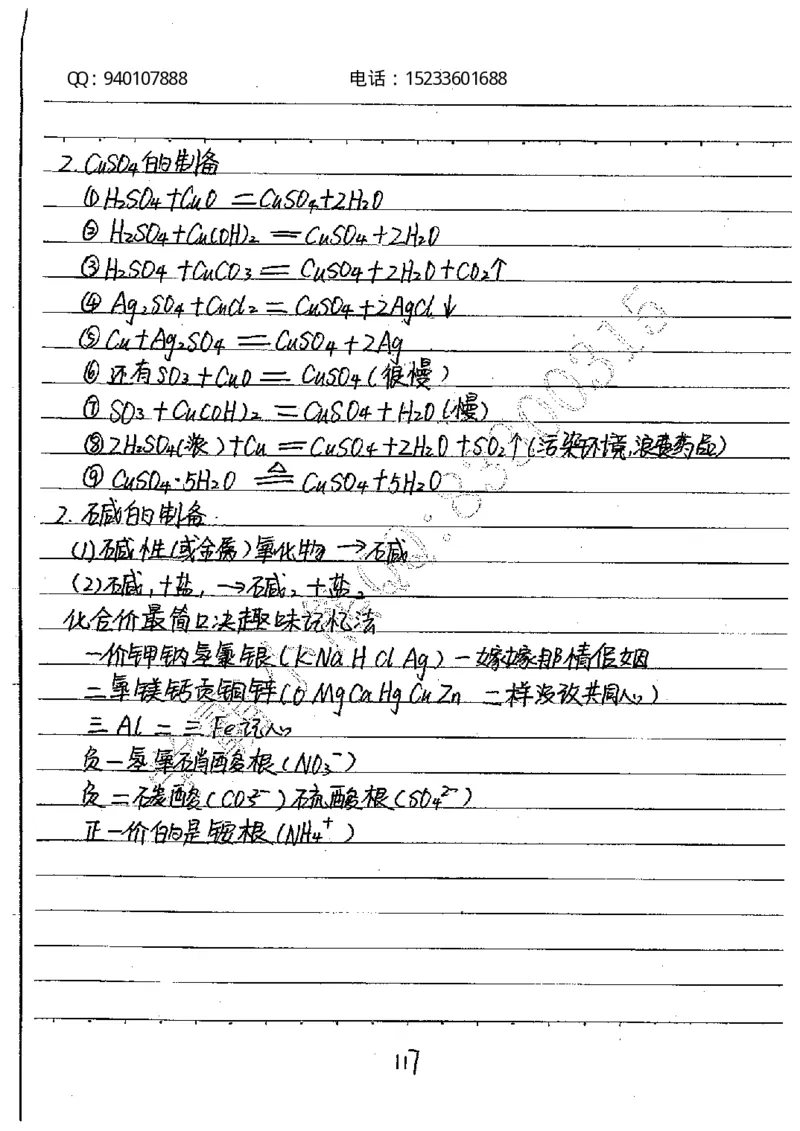 QQ：940107888 电话：15233601688
2. CuSO₄的制备
① H₂SO₄+CuO ═ CuSO₄+2H₂O
② H₂SO₄+Cu(OH)₂ ═ CuSO₄+2H₂O
③ H₂SO₄+CuCO₃ ═ CuSO₄+2H₂O+CO₂↑
④ Ag₂SO₄+CuCl₂ ═ CuSO₄+2AgCl↓
⑤ Cu+Ag₂SO₄ ═ CuSO₄+2Ag
⑥ 还有SO₃+CuO ═ CuSO₄(很慢)
⑦ SO₃+Cu(OH)₂ ═ CuSO₄+H₂O(慢)
⑧ 2H₂SO₄(浓)+Cu ═ CuSO₄+2H₂O+SO₂↑(污染环境,浪费药品)
⑨ CuSO₄·5H₂O ≜ CuSO₄+5H₂O
2. 碱的制备.
(1)碱性(或金属)氧化物→碱
(2)碱₁+盐₁→碱₂+盐₂
化合价最简口决趣味记忆法
一价钾钠氢氯银(K Na H Cl Ag)一嫁嫁那情假姻
二氧镁钙贡铜锌(O Mg Ca Hg Cu Zn 二样没改共同心)
三Al二三Fe记心
负一氢氧硝酸根(NO₃⁻)
负二碳酸(CO₃²⁻)硫酸根(SO₄²⁻)
正一价的是铵根(NH₄⁺)
117
QQ:83300315